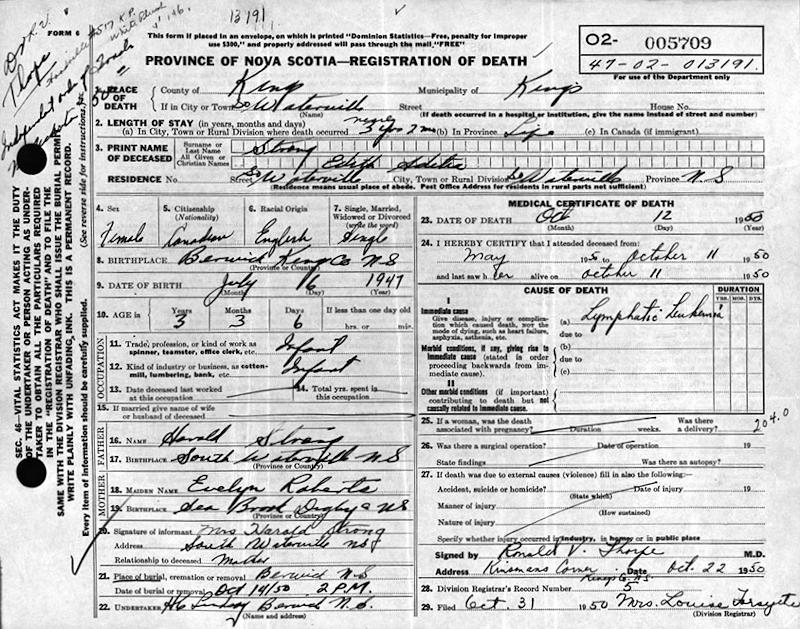 13191
FORM 6
This form if placed in an envelope, on which is printed "Dominion Statistics—Free, penalty for improper
use $300," and properly addressed will pass through the mail "FREE"
O2- 005709
47-02-013191.
For use of the Department only
PROVINCE OF NOVA SCOTIA—REGISTRATION OF DEATH
Thorpe
Independent order of
1. PLACE OF DEATH
County of Kings Municipality of Kings
If in City or Town So Waterville Street House No.
(Name) (If death occurred in a hospital or institution, give the name instead of street and number)
2. LENGTH OF STAY (in years, months and days)
(a) In City, Town or Rural Division where death occurred 3 yrs 2 mo (b) In Province Life (c) In Canada (if immigrant)
3. PRINT NAME OF DECEASED
Surname or Last Name Strong
All Given or Christian Names Edith
RESIDENCE No. Street So Waterville City, Town or Rural Division So Waterville Province N.S
(Residence means usual place of abode. Post Office Address for residents in rural parts not sufficient)
4. Sex Female
5. Citizenship (Nationality) Canadian
6. Racial Origin English
7. Single, Married, Widowed or Divorced (write the word) Single
8. BIRTHPLACE Berwick Kings Co N S
(Province or Country)
9. DATE OF BIRTH July 16 1947
(Month) (Day) (Year)
10. AGE in Years 3 Months 3 Days 6 If less than one day old
hrs. or min.
OCCUPATION
11. Trade, profession, or kind of work as spinner, teamster, office clerk, etc. Infant
12. Kind of industry or business, as cotton-mill, lumbering, bank, etc. Infant
13. Date deceased last worked at this occupation
14. Total yrs. spent in this occupation
15. If married give name of wife or husband of deceased
FATHER
16. NAME Harold Strong
17. BIRTHPLACE South Waterville N S
(Province or Country)
MOTHER
18. MAIDEN NAME Evelyn Roberts
19. BIRTHPLACE Sea Brook Digby Co N S
(Province or Country)
20. Signature of informant Mrs Harold Strong
Address South Waterville N S
Relationship to deceased Mother
21. Place of burial, cremation or removal Berwick N.S
Date of burial or removal Oct 14/50 2 P.M.
22. UNDERTAKER Lindsay Berwick N.S.
(Name and address)
MEDICAL CERTIFICATE OF DEATH
23. DATE OF DEATH Oct 12 1950
(Month) (Day) (Year)
24. I HEREBY CERTIFY that I attended deceased from:
May 1950 to October 11 1950
and last saw her alive on October 11 1950
CAUSE OF DEATH
DURATION
YRS. MOS. DYS.
I
Immediate cause
Give disease, injury or complication which caused death, not the mode of dying, such as heart failure, asphyxia, asthenia, etc.
(a) Lymphatic Leukemia
due to
Morbid conditions, if any, giving rise to immediate cause (stated in order proceeding backwards from immediate cause).
(b)
due to
(c)
II
Other morbid conditions (if important) contributing to death but not causally related to immediate cause.
204.0
25. If a woman, was the death associated with pregnancy? Duration weeks. Was there a delivery?
26. Was there a surgical operation? Date of operation 19
State findings Was there an autopsy?
27. If death was due to external causes (violence) fill in also the following:—
Accident, suicide or homicide? Date of injury 19
(State which)
Manner of injury
(How sustained)
Nature of injury
Specify whether injury occurred in industry, in home, or in public place
Signed by Ronald V. Thorpe M.D.
Address Kinsmans Corner Date Oct. 22 1950
Kings Co. N.S.
28. Division Registrar's Record Number 5
29. Filed Oct. 31 1950 Mrs. Louise Forsythe
(Division Registrar)
SEC. 46—VITAL STATISTICS ACT MAKES IT THE DUTY
OF THE UNDERTAKER OR PERSON ACTING AS UNDER-
TAKER TO OBTAIN ALL THE PARTICULARS REQUIRED
IN THE "REGISTRATION OF DEATH" AND TO FILE THE
SAME WITH THE DIVISION REGISTRAR WHO SHALL ISSUE THE BURIAL PERMIT.
WRITE PLAINLY WITH UNFADING INK. THIS IS A PERMANENT RECORD.
Every item of information should be carefully supplied. (See reverse side for instructions.)